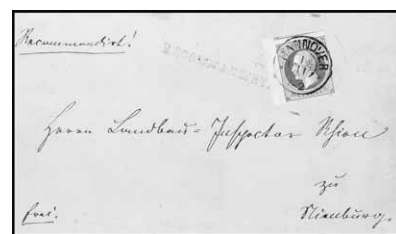 Recommandirt!
RECOMMANDIRT.
HANNOVER
Herrn Landbau-Inspector Rhien
zu
frei. Nienburg.